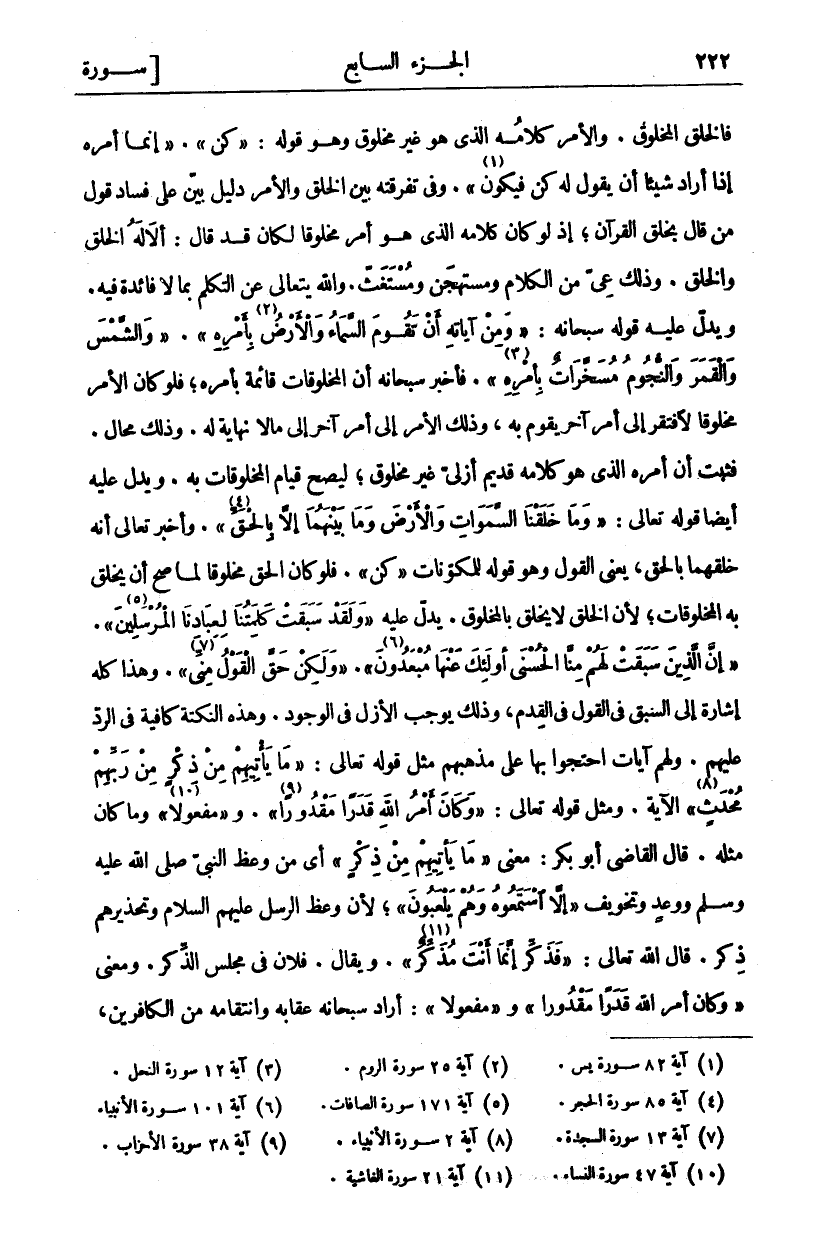 ٢٢٢ الجـزء السابع [ سـورة
فالخلق المخلوق . والأمر كلامُـه الذى هو غير مخلوق وهـو قوله : «كن» . « إنمـا أمره
إذا أراد شيئا أن يقول له كن فيكون (١)» . وفى تفرقته بين الخلق والأمر دليل بيّن على فساد قول
من قال بخلق القرآن ؛ إذ لو كان كلامه الذى هـو أمر مخلوقا لكان قـد قال : ألَالَهُ الخلق
والخلق . وذلك عِىّ من الكلام ومستهجَن ومُسْتَغَثّ . والله يتعالى عن التكلم بما لا فائدة فيه .
ويدلّ عليـه قوله سبحانه : « وَمِنْ آيَاتِهِ أَنْ تَقُـومَ السَّمَاءُ وَالْأَرْضُ بِأَمْرِهِ (٢)» . « وَالشَّمْسَ
وَالْقَمَرَ وَالنُّجُومُ مُسَخَّرَاتٌ بِأَمْرِهِ (٣)» . فأخبر سبحانه أن المخلوقات قائمة بأمره ؛ فلو كان الأمر
مخلوقا لآفتقر إلى أمر آخر يقوم به ، وذلك الأمر إلى أمر آخر إلى مالا نهاية له . وذلك محال .
فثبت أن أمره الذى هو كلامه قديم أزلىّ غير مخلوق ؛ ليصح قيام المخلوقات به . ويدل عليه
أيضا قوله تعالى : « وَمَا خَلَقْنَا السَّمَوَاتِ وَالْأَرْضَ وَمَا بَيْنَهُمَا إِلَّا بِالْحَقِّ (٤)» . وأخبر تعالى أنه
خلقهما بالحق ، يعنى القول وهو قوله للمكوّنات «كن» . فلو كان الحق مخلوقا لما صح أن يخلق
به المخلوقات ؛ لأن الخلق لا يخلق بالمخلوق . يدلّ عليه «وَلَقَدْ سَبَقَتْ كَلِمَتُنَا لِعِبَادِنَا الْمُرْسَلِينَ (٥)» .
« إِنَّ الَّذِينَ سَبَقَتْ لَهُمْ مِنَّا الْحُسْنَى أُولَئِكَ عَنْهَا مُبْعَدُونَ (٦)» . «وَلَكِنْ حَقَّ الْقَوْلُ مِنِّى (٧)» . وهذا كله
إشارة إلى السبق فى القول فى القِدم ، وذلك يوجب الأزل فى الوجود . وهذه النكتة كافية فى الردّ
عليهم . ولهم آيات احتجوا بها على مذهبهم مثل قوله تعالى : « مَا يَأْتِيهِمْ مِنْ ذِكْرٍ مِنْ رَبِّهِمْ
مُحْدَثٍ (٨)» الآية . ومثل قوله تعالى : «وَكَانَ أَمْرُ اللهِ قَدَرًا مَقْدُورًا (٩)» . و «مفعولا (١٠)» وما كان
مثله . قال القاضى أبو بكر : معنى « مَا يَأْتِيهِمْ مِنْ ذِكْرٍ » أى من وعظ النبىّ صلى الله عليه
وسـلم ووعدٍ وتخويف «إِلَّا آسْتَمَعُوهُ وَهُمْ يَلْعَبُونَ» ؛ لأن وعظ الرسل عليهم السلام وتحذيرهم
ذِكر . قال الله تعالى : «فَذَكِّرْ إِنَّمَا أَنْتَ مُذَكِّرٌ (١١)» . ويقال . فلان فى مجلس الذِّكر . ومعنى
« وكان أمر الله قَدَرًا مَقْدُورا » و «مفعولا» : أراد سبحانه عقابه وانتقامه من الكافرين ،
(١) آية ٨٢ سـورة يس . (٢) آية ٢٥ سورة الروم . (٣) آية ١٢ سورة النحل .
(٤) آية ٨٥ سورة الحجر . (٥) آية ١٧١ سورة الصافات . (٦) آية ١٠١ سـورة الأنبياء
(٧) آية ١٣ سورة السجدة . (٨) آية ٢ سـورة الأنبياء . (٩) آية ٣٨ سورة الأحزاب .
(١٠) آية ٤٧ سورة النساء . (١١) آية ٢١ سورة الغاشية .